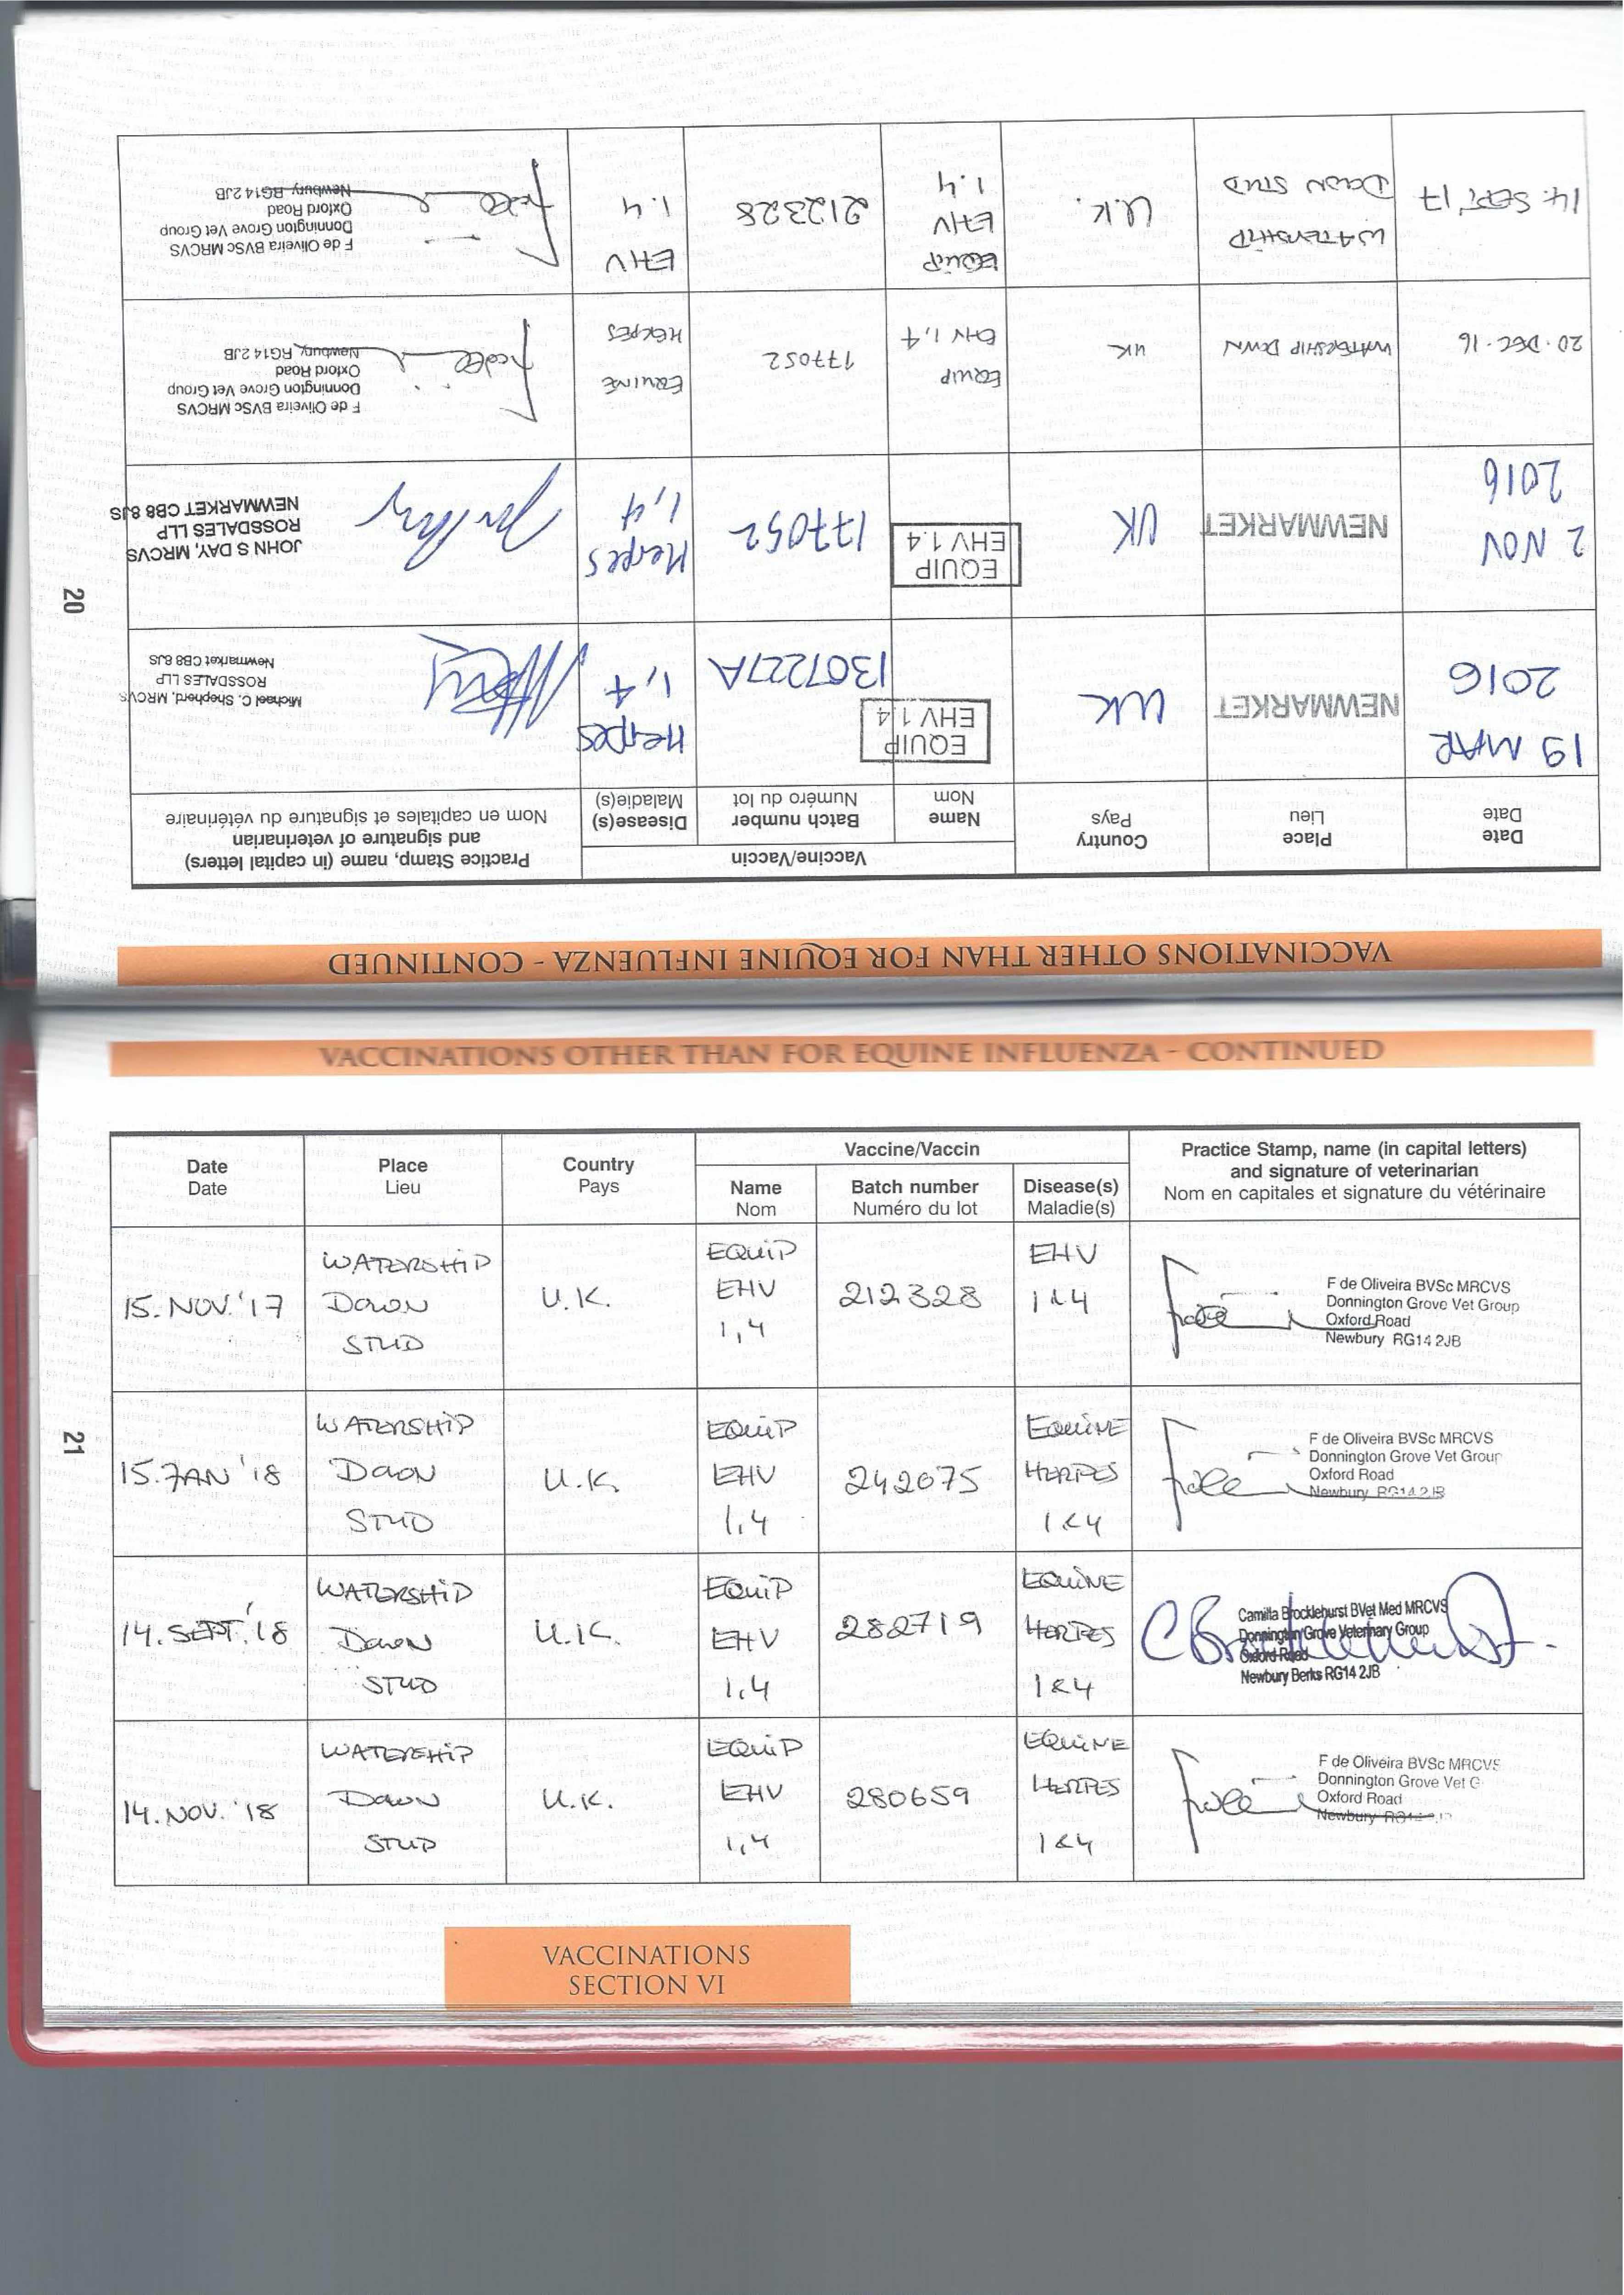 VACCINATIONS OTHER THAN FOR EQUINE INFLUENZA - CONTINUED
Date
Date
Place
Lieu
Country
Pays
Vaccine/Vaccin
Name
Nom
Batch number
Numéro du lot
Disease(s)
Maladie(s)
Practice Stamp, name (in capital letters)
and signature of veterinarian
Nom en capitales et signature du vétérinaire
19 MAR
2016
NEWMARKET
UK
EQUIP
EHV 1.4
1307227A
Herpes
1,4
Michael C. Shepherd, MRCVS
ROSSDALES LLP
Newmarket CB8 8JS
2 NOV
2016
NEWMARKET
UK
EQUIP
EHV 1.4
177052
Herpes
1,4
JOHN S DAY, MRCVS
ROSSDALES LLP
NEWMARKET CB8 8JS
20. DEC. 16
WATERSHIP DOWN
UK
EQUIP
EHV 1,4
177052
EQUINE
HERPES
F de Oliveira BVSc MRCVS
Donnington Grove Vet Group
Oxford Road
Newbury, RG14 2JB
14. SEPT' 17
WATERSHIP
DOWN STUD
U.K.
EQUIP
EHV
1.4
212328
EHV
1.4
F de Oliveira BVSc MRCVS
Donnington Grove Vet Group
Oxford Road
Newbury RG14 2JB
20
VACCINATIONS OTHER THAN FOR EQUINE INFLUENZA - CONTINUED
Date
Date
Place
Lieu
Country
Pays
Vaccine/Vaccin
Name
Nom
Batch number
Numéro du lot
Disease(s)
Maladie(s)
Practice Stamp, name (in capital letters)
and signature of veterinarian
Nom en capitales et signature du vétérinaire
15. NOV. '17
WATERSHIP
DOWN
STUD
U.K.
EQUIP
EHV
1,4
212328
EHV
1&4
F de Oliveira BVSc MRCVS
Donnington Grove Vet Group
Oxford Road
Newbury RG14 2JB
15. JAN '18
WATERSHIP
DOWN
STUD
U.K.
EQUIP
EHV
1,4
242075
EQUINE
HERPES
1&4
F de Oliveira BVSc MRCVS
Donnington Grove Vet Group
Oxford Road
Newbury RG14 2JB
14. SEPT. '18
WATERSHIP
DOWN
STUD
U.K.
EQUIP
EHV
1,4
282719
EQUINE
HERPES
1&4
Camilla Brocklehurst BVet Med MRCVS
Donnington Grove Veterinary Group
Oxford Road
Newbury Berks RG14 2JB
14. NOV. '18
WATERSHIP
DOWN
STUD
U.K.
EQUIP
EHV
1,4
280659
EQUINE
HERPES
1&4
F de Oliveira BVSc MRCVS
Donnington Grove Vet G
Oxford Road
Newbury
21
VACCINATIONS
SECTION VI